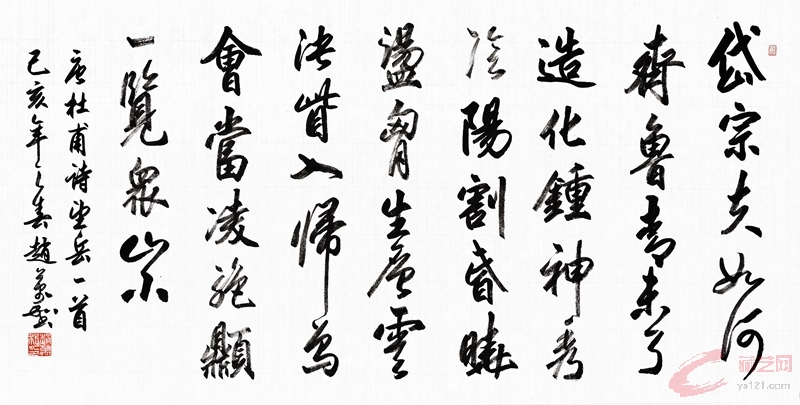 岱宗夫如何
齊魯青未了
造化鍾神秀
陰陽割昏曉
盪胸生層雲
決眥入歸鳥
會當凌絕顛
一覽衆山小
唐杜甫詩望岳一首
己亥年之春趙
藏艺网
ys121.com